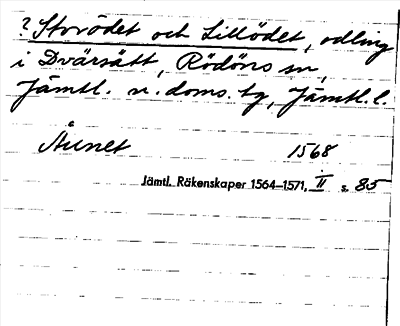 ? Storödet och Lillödet, odling
i Dvärsätt, Rödöns sn,
Jämtl. n. doms. tg, Jämtl. l.
Åunet 1568
Jämtl. Räkenskaper 1564–1571, II s. 85